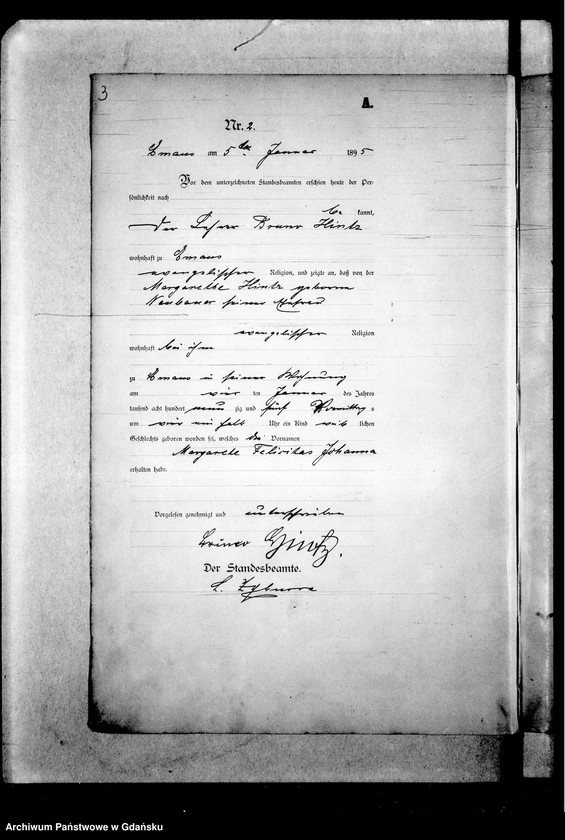 3
A.
Nr. 2.
Emaus am 5ten Januar 1895
Vor dem unterzeichneten Standesbeamten erschien heute der Per-
sönlichkeit nach
be kannt,
der Lehrer Bruno Hintz
wohnhaft zu Emaus
evangelischer Religion, und zeigte an, daß von der
Margarethe Hintz geborene
Neubauer seiner Ehefrau
evangelischer Religion
wohnhaft bei ihm
zu Emaus in seiner Wohnung
am vier ten Januar des Jahres
tausend acht hundert neun zig und fünf Vormittags
um vier ein halb Uhr ein Kind weib lichen
Geschlechts geboren worden sei, welches die Vornamen
Margarete Felicitas Johanna
erhalten habe.
Vorgelesen, genehmigt und unterschrieben
Bruno Hintz.
Der Standesbeamte.
Archiwum Państwowe w Gdańsku